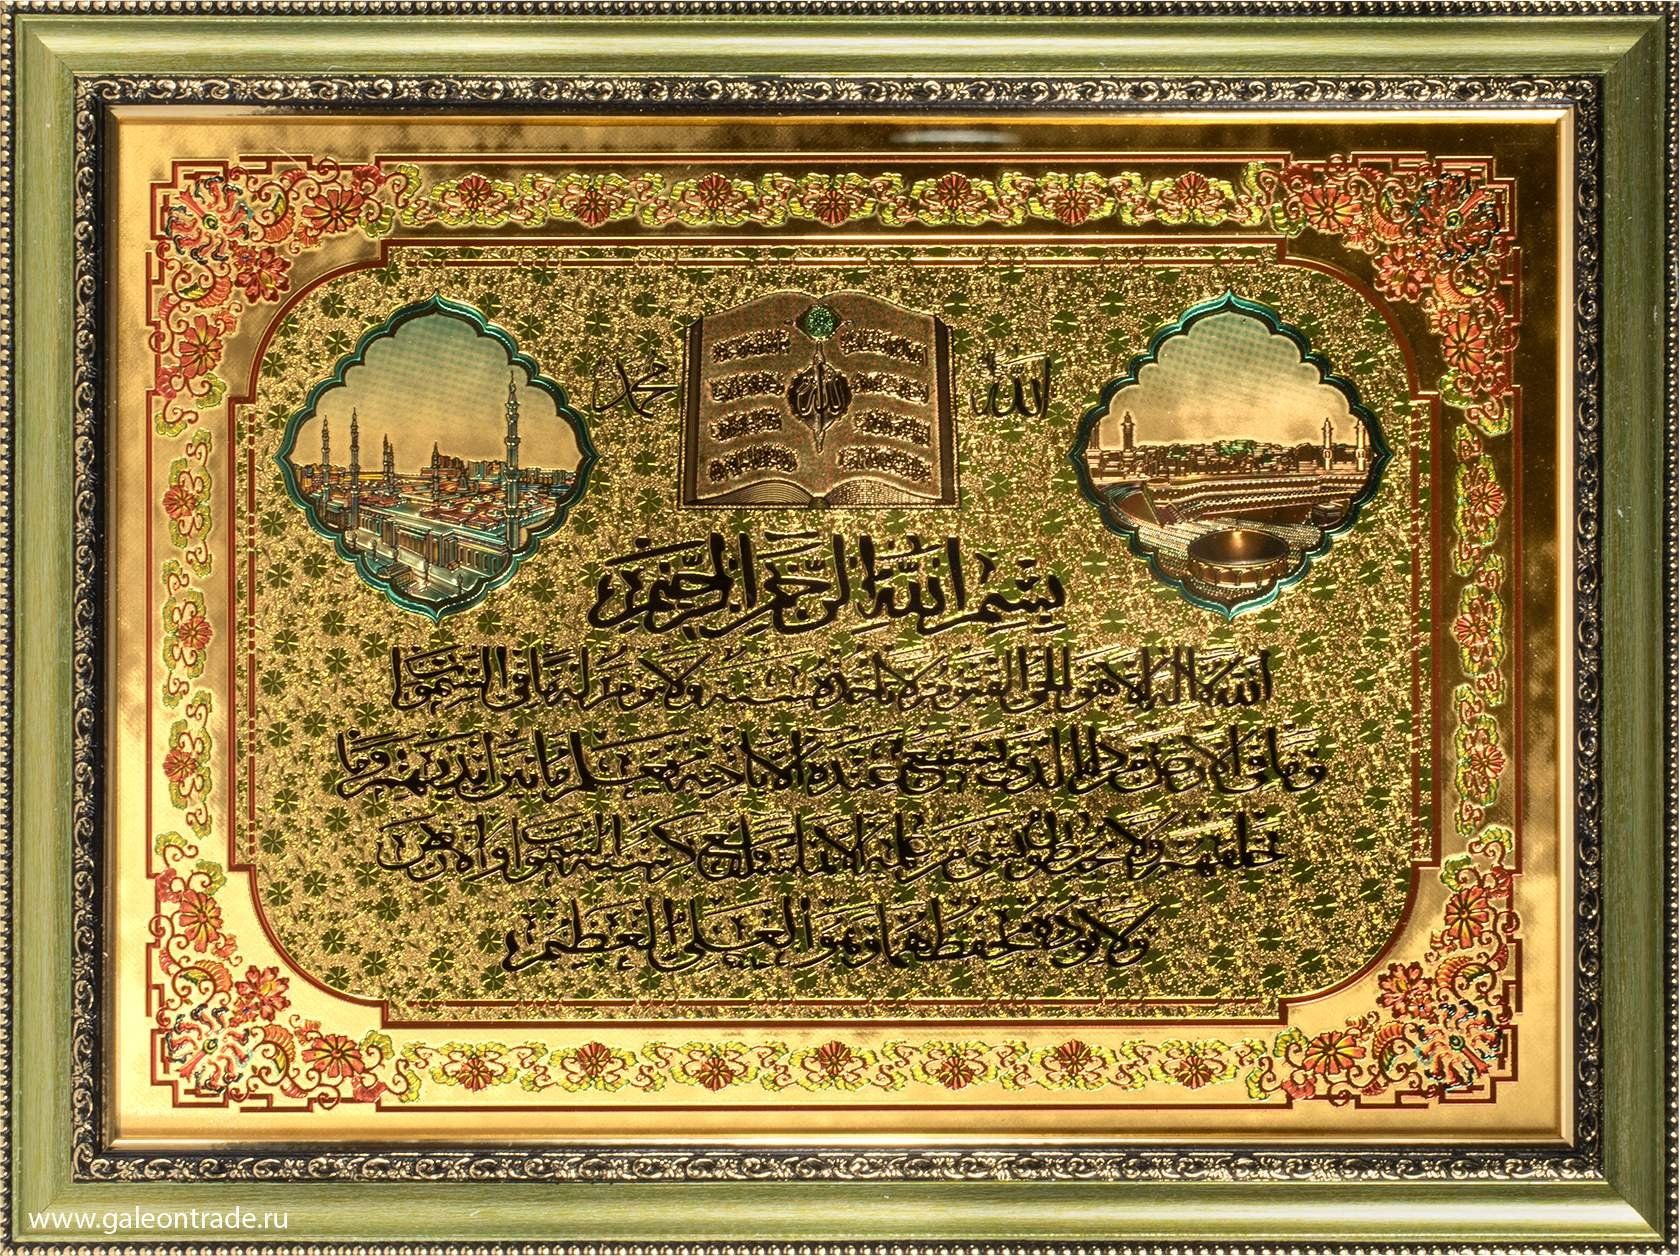 الله
محمد
الله
بسم الله الرحمن الرحيم
الله لا اله الا هو الحي القيوم لا تاخذه سنة ولا نوم له ما في السموات
وما في الارض من ذا الذي يشفع عنده الا باذنه يعلم ما بين ايديهم وما
خلفهم ولا يحيطون بشيء من علمه الا بما شاء وسع كرسيه السموات والارض
ولا يؤده حفظهما وهو العلي العظيم
www.galeontrade.ru